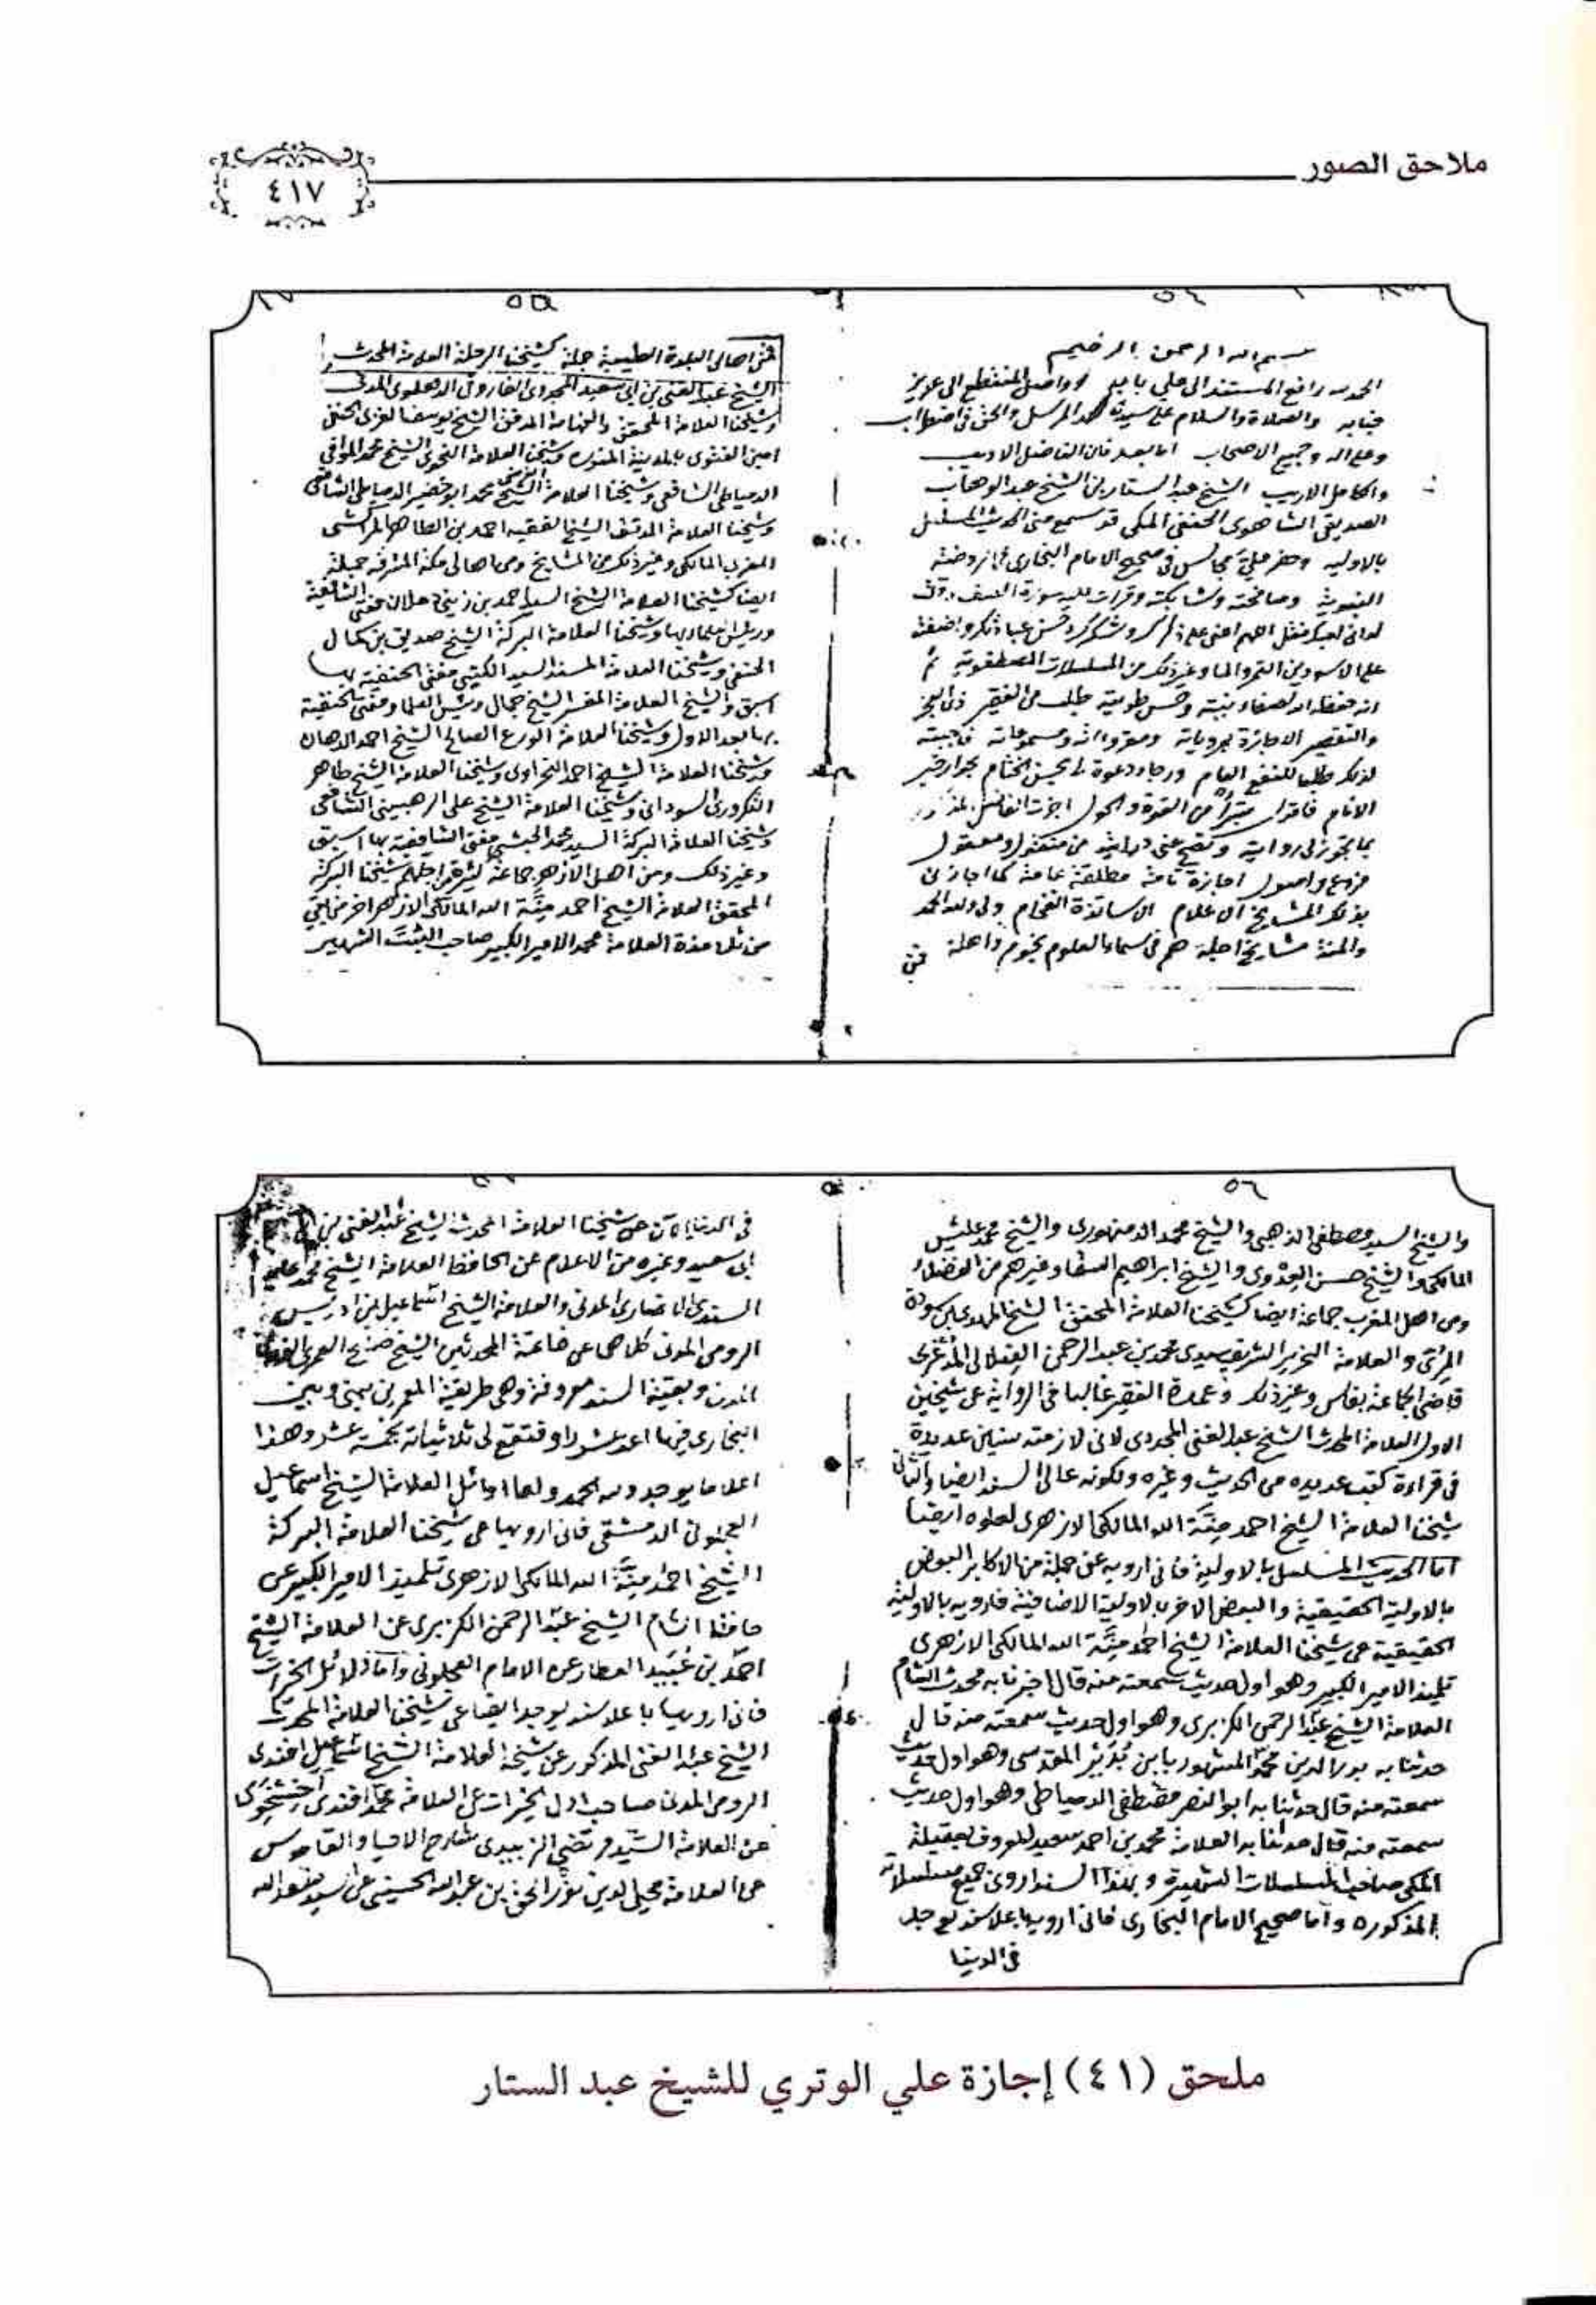 ملاحق الصور
٤١٧
٥٤
بسم الله الرحمن الرحيم
الحمد لله رافع المستند الى علي بابه وواصل المنقطع الى عزيز
جنابه والصلاة والسلام على سيدنا محمد المرسل والحق في
وعلى اله وجميع الاصحاب اما بعد فان الفاضل الاديب
والكامل الاريب الشيخ عبد الستار بن الشيخ عبد الوهاب
الصديقي الشاهوى الحنفي المكي قد سمع مني الحديث المسلسل
بالاوليه وحضر علي مجالس في صحيح الامام البخارى في الروضة
النبوية وصافحته وشابكته وقرات عليه سورة الصف
اللهم اعني على ذكرك وشكرك وحسن عبادتك واضفته
على الاسودين التمر والماء وغير ذلك من المسلسلات المصطفوية ثم
انه حفظه الله لصفاء نيته وحسن طويته طلب من الفقير ذي العجز
والتقصير الاجازة بمروياته ومقرواته ومسموعاته فاجبته
لذلك طلبا للنفع العام ورجاء دعوة لي بحسن الختام بجوار خير
الانام فاقول متبرأ من القوة والحول اجزت الفاضل المذكور
بما تجوز لي روايته وتصح عني درايته من منقول ومعقول
فروع واصول اجازة تامة مطلقة عامة كما اجازني
بذلك المشايخ الاعلام الاساتذة الفخام ولي ولله الحمد
والمنة مشايخ اجلة هم في سماء العلوم نجوم واهلة فمن
٥٥
فمن اهالي البلدة الطيبة جملة كشيخنا الرحلة العلامة المحدث
الشيخ عبد الغني بن ابي سعيد المجددى الفاروقي الدهلوى المدني
وشيخنا العلامة المحقق والفهامة المدقق الشيخ يوسف الغزى الحنفي
امين الفتوى بالمدينة المنوره وشيخنا العلامة النحوى الشيخ محمد الموافي
الدمياطي الشافعي وشيخنا العلامة الشيخ محمد ابو خضير الدمياطي الشافعي
وشيخنا العلامة المدقق الشيخ الفقيه احمد بن الطاهر المراكشى
المغربي المالكي وغير ذلك من المشايخ ومن اهالي مكة المشرفة جملة
ايضا كشيخنا العلامة الشيخ السيد احمد بن زيني دحلان مفتي الشافعية
ورئيس علمائها وشيخنا العلامة البركة الشيخ صديق بن كمال
الحنفي وشيخنا العلامة المسند السيد الكتبي مفتي الحنفية بها
اسبق والشيخ العلامة المفسر الشيخ جمال رئيس العلما ومفتي الحنفية
بها بعد الاول وشيخنا العلامة الورع الصالح الشيخ احمد الدهان
وشيخنا العلامة الشيخ احمد النحراوى وشيخنا العلامة الشيخ طاهر
التكرورى السوداني وشيخنا العلامة الشيخ علي الرهبيني الشافعي
وشيخنا العلامة البركة السيد محمد الحبشي مفتي الشافعية بها اسبق
وغير ذلك ومن اهل الازهر جماعة كثر اجلهم شيخنا البركة
المحقق العلامة الشيخ احمد منة الله المالكي الازهرى اخر من بقي
من تلامذة العلامة محمد الامير الكبير صاحب الثبت الشهير
٥٦
والشيخ السيد مصطفى الذهبي والشيخ محمد الدمنهورى والشيخ محمد عليش
المالكي والشيخ حسن العدوى والشيخ ابراهيم السقا وغيرهم من الفضلاء
ومن اهل المغرب جماعة ايضا كشيخنا العلامة المحقق الشيخ المهدي بن سودة
المري والعلامة النحرير الشريف سيدى محمد بن عبد الرحمن الفيلالي المدغرى
قاضي الجماعة بفاس وغير ذلك وعمدة الفقير غالبا في الرواية عن شيخين
الاول العلامة المحدث الشيخ عبد الغني المجددى لاني لازمته سنين عديدة
في قراءة كتب عديده من الحديث وغيره ولكونه عالي السند ايضا والثاني
شيخنا العلامة الشيخ احمد منة الله المالكي الازهرى لعلوه ايضا
اما الحديث المسلسل بالاولية فاني ارويه عن جملة من الاكابر البعض
بالاولية الحقيقية والبعض الاخر بالاولية الاضافية فارويه بالاولية
الحقيقية عن شيخنا العلامة الشيخ احمد منة الله المالكي الازهرى
تلميذ الامير الكبير وهو اول حديث سمعته منه قال اخبرنا به محدث الشام
العلامة الشيخ عبد الرحمن الكزبرى وهو اول حديث سمعته منه قال
حدثنا به بدر الدين محمد المشهور بابن بدير المقدسى وهو اول حديث
سمعته منه قال حدثنا به ابو النصر مصطفى الدمياطي وهو اول حديث
سمعته منه قال حدثنا به العلامة محمد بن احمد سعيد المعروف بعقيلة
المكي صاحب المسلسلات الشهيرة وبهذا السند اروى جميع مسلسلاته
المذكوره واما صحيح الامام البخارى فاني ارويه باعلا سند يوجد
في الدنيا
في الدنيا الان عن شيخنا العلامة المحدث الشيخ عبد الغني بن
ابي سعيد وغيره من الاعلام عن الحافظ العلامة الشيخ محمد عابد
السندى الانصارى المدني والعلامة الشيخ اسماعيل بن ادريس
الرومي المدني كلاهما عن خاتمة المحدثين الشيخ صالح العمرى الفلاني
المدني وبقية السند معروفة وهي طريقة المعمرين بيني وبين
البخارى فيها احد عشر راو فتقع لي ثلاثياته بخمسة عشر وهذا
اعلا ما يوجد ولله الحمد واما اوائل العلامة الشيخ اسماعيل
العجلوني الدمشقي فاني ارويها عن شيخنا العلامة البركة
الشيخ احمد منة الله المالكي الازهرى تلميذ الامير الكبير عن
حافظ الشام الشيخ عبد الرحمن الكزبرى عن العلامة الشيخ
احمد بن عبيد العطار عن الامام العجلوني واما دلائل الخيرات
فاني ارويها باعلا سند يوجد ايضا عن شيخنا العلامة المحدث
الشيخ عبد الغني المذكور عن شيخه العلامة الشيخ اسماعيل افندى
الرومي المدني صاحب الخيرات عن العلامة محمد افندى
عن العلامة السيد مرتضى الزبيدى شارح الاحيا والقاموس
عن العلامة محيي الدين نور الحق بن عبد الله الحسيني عن السيد سعد الله
ملحق (٤١) إجازة علي الوتري للشيخ عبد الستار